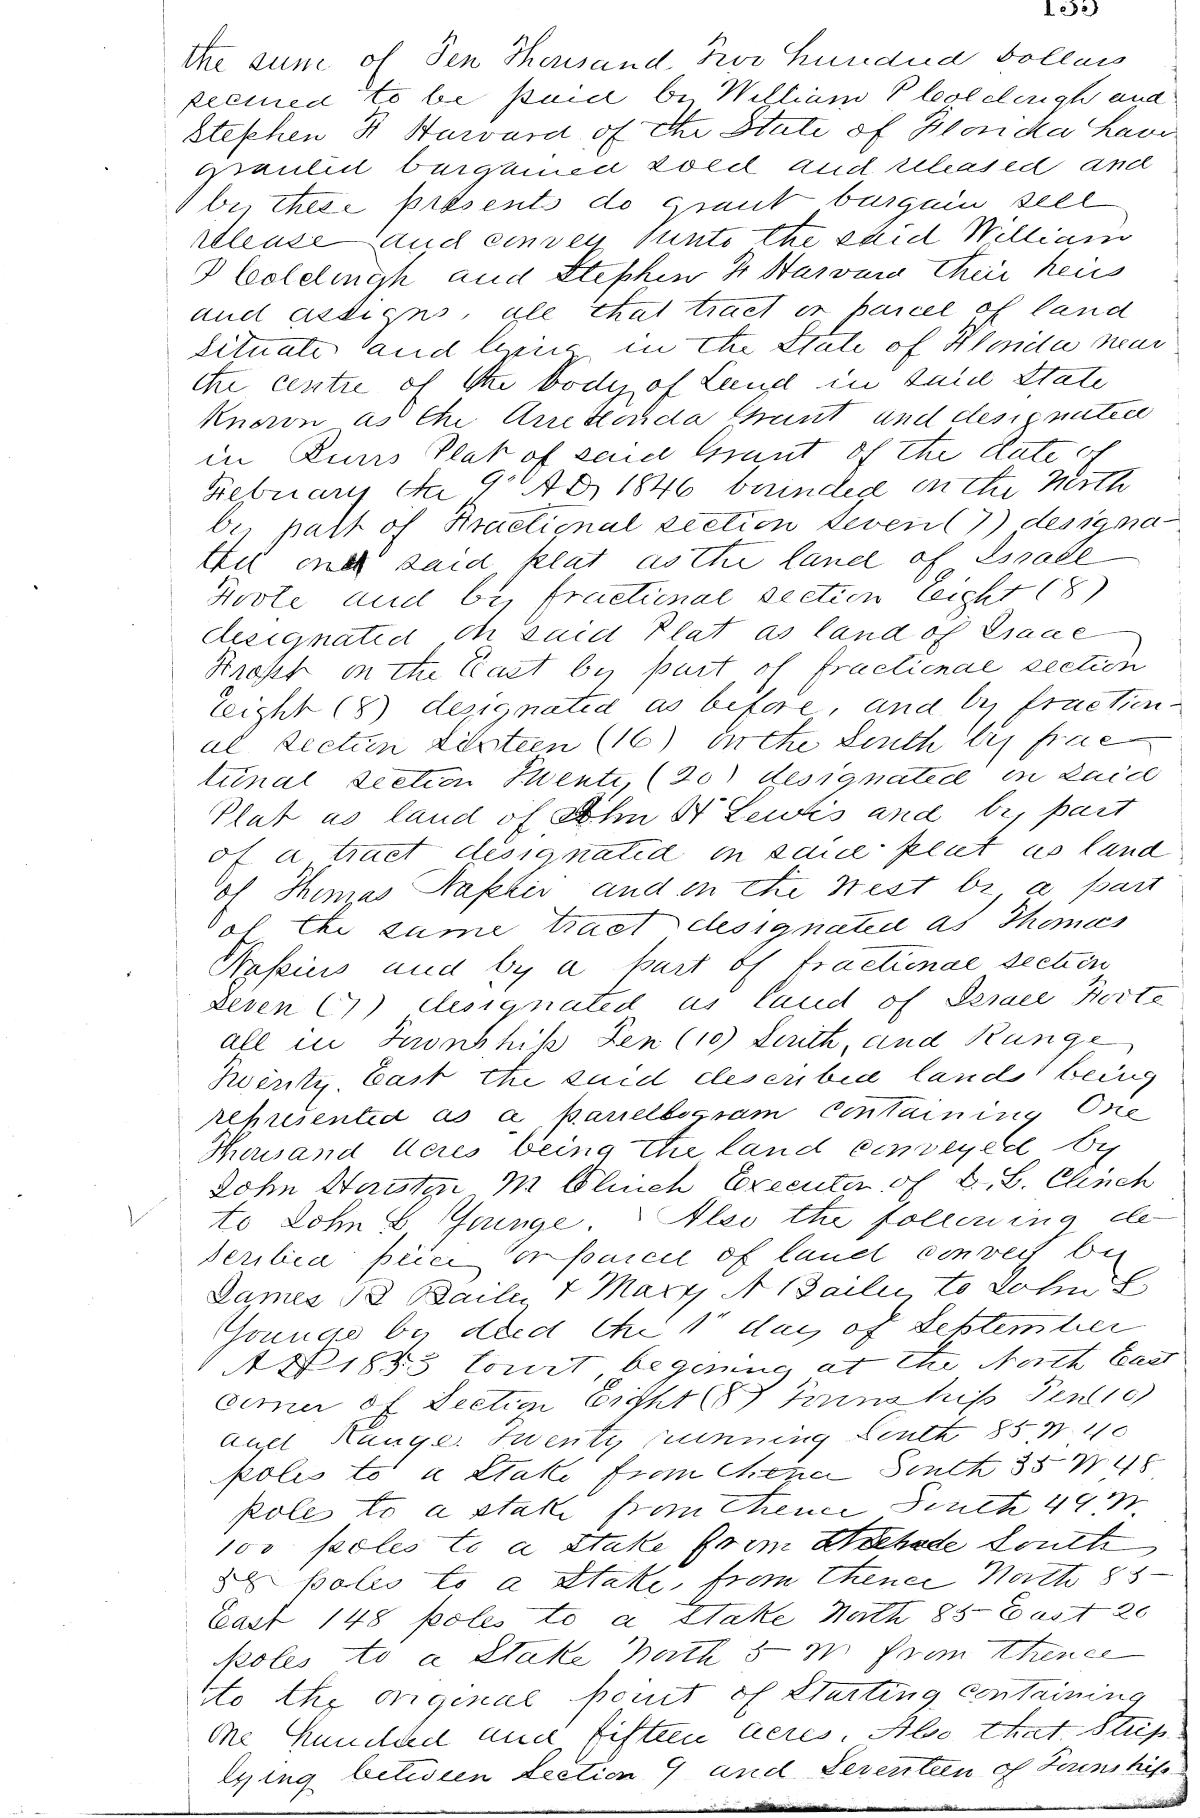 135
the sum of Ten Thousand Two hundred Dollars
secured to be paid by William P Coldingh and
Stephen H Harvard of the State of Florida have
granted bargained sold and released and
by these presents do grant bargain sell
release and convey unto the said William
P Coldingh and Stephen H Harvard their heirs
and assigns, all that tract or parcel of land
Situate and lying in the State of Florida near
the centre of the body of Land in said State
Known as the Arredonda Grant and designated
in Burrs Plat of said Grant of the date of
February the 9" A D, 1846 bounded on the North
by part of Fractional section Seven (7) designa-
ted on said plat as the land of Israel
Foote and by fractional section Eight (8)
designated on said Plat as land of Isaac
on the East by part of fractional section
Eight (8) designated as before, and by fraction-
al section Sixteen (16) on the South by frac
tional section Twenty (20) designated on said
Plat as land of John H Lewis and by part
of a tract designated on said plat as land
of Thomas Napier and on the West by a part
of the same tract designated as Thomas
Napiers and by a part of fractional section
Seven (7) designated as land of Israel Foote
all in Township Ten (10) South, and Range
Twenty. East the said described lands being
represented as a parrellogram containing One
Thousand acres being the land conveyed by
John Houston M Clinch Executor of D. L. Clinch
to John C Younge. Also the following de-
scribed piece or parcel of land convey by
James B Bailey & Mary A Bailey to John C
Younge by deed the 1" day of September
A D 1853 to wit, begining at the North East
corner of Section Eight (8) Township Ten (10)
and Range. Twenty running South 85 W 40
poles to a Stake from thence South 35 W 48
poles to a stake from thence South 49 W.
100 poles to a stake from South
58 poles to a Stake, from thence North 85
East 148 poles to a Stake North 85 East 20
poles to a Stake North 5 W from thence
to the original point of Starting containing
One hundred and fifteen acres. Also that Strip
lying between Section 9 and Seventeen of Township